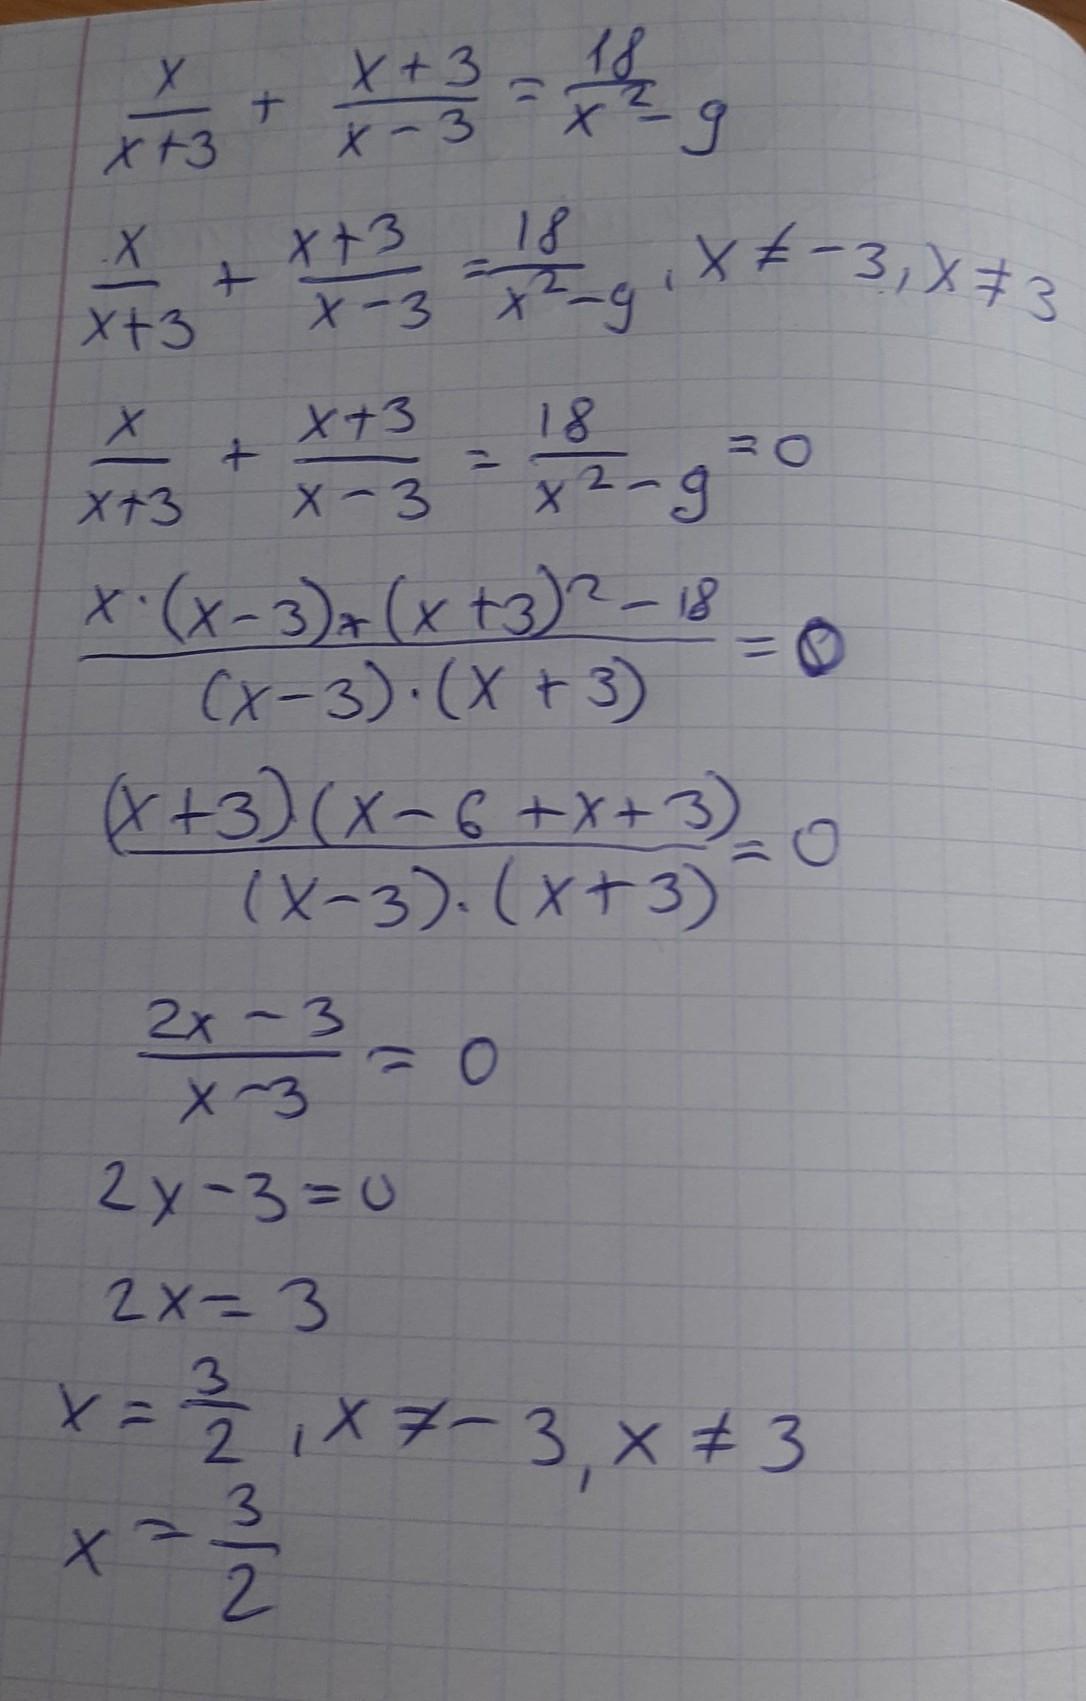 x/(x+3) + (x+3)/(x-3) = 18/(x²-9)
x/(x+3) + (x+3)/(x-3) = 18/(x²-9), x ≠ -3, x ≠ 3
x/(x+3) + (x+3)/(x-3) = 18/(x²-9) = 0
(x·(x-3)+(x+3)²-18)/((x-3)·(x+3)) = 0
((x+3)(x-6+x+3))/((x-3)·(x+3)) = 0
(2x-3)/(x-3) = 0
2x-3=0
2x=3
x = 3/2, x ≠ -3, x ≠ 3
x = 3/2